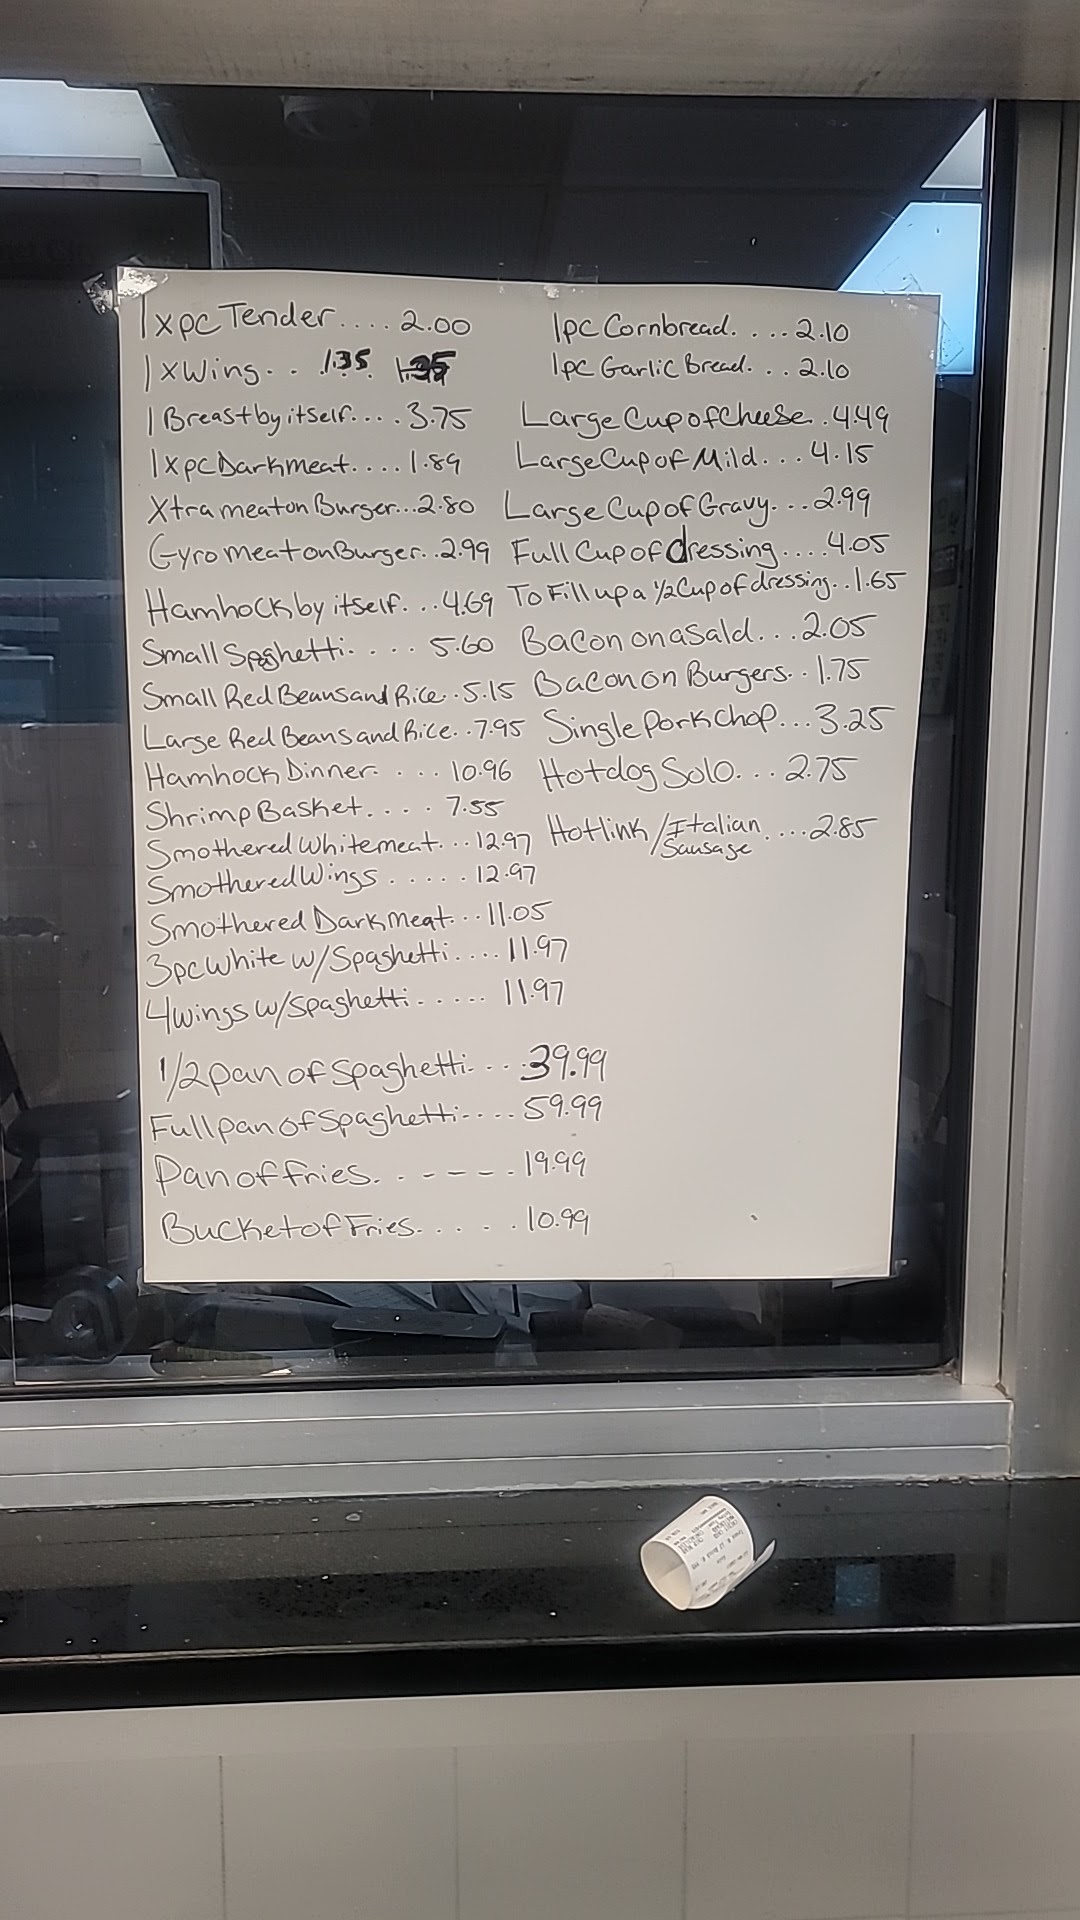 1xpc Tender.... 2.00
1xWing.. 1.35
1 Breast by itself.... 3.75
1xpc Darkmeat.... 1.89
Xtra meat on Burger...2.80
Gyro meat on Burger..2.99
Hamhock by itself...4.69
Small Spaghetti.... 5.60
Small Red Beans and Rice..5.15
Large Red Beans and Rice..7.95
Hamhock Dinner.... 10.96
Shrimp Basket.... 7.55
Smothered Whitemeat...12.97
Smothered Wings.....12.97
Smothered Dark Meat...11.05
3pc White w/Spaghetti....11.97
4wings w/spaghetti.....11.97
1/2 pan of Spaghetti....39.99
Full pan of Spaghetti....59.99
Pan of fries. . - - - -.19.99
Bucket of Fries.....10.99
1pc Cornbread.....2.10
1pc Garlic Bread....2.10
Large Cup of Cheese..4.49
Large Cup of Mild...4.15
Large Cup of Gravy....2.99
Full Cup of dressing....4.05
To Fill up a 1/2 Cup of dressing..1.65
Bacon on a Sald...2.05
Bacon on Burgers..1.75
Single Pork Chop...3.25
Hotdog Solo...2.75
Hotlink/Italian....2.85
Sausage